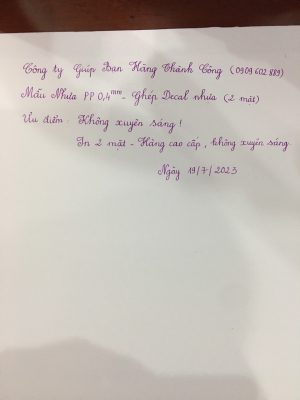 Công ty Giúp Bạn Hàng Thành Công (0909 602 889)
Mẫu Nhựa PP 0,4mm - Ghép Decal nhựa (2 mặt)
Ưu điểm: Không xuyên sáng!
In 2 mặt - Hàng cao cấp, không xuyên sáng.
Ngày 19/7/2023